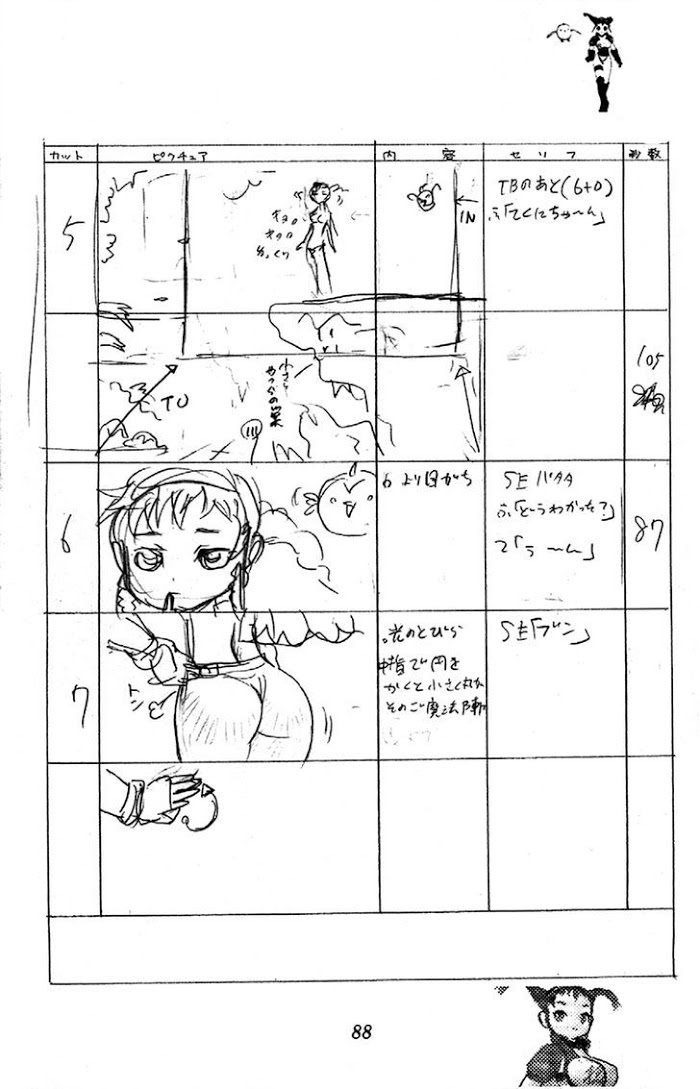 カット ピクチュア 内容 セリフ 秒数
5
キョロ
キョロ
IN
TBのあと(6+0)
ふ「てくにちゃ〜ん」
TO
小さな
105
6
6 より目がち
SE バタタ
ふ「どうわかった?」
て「う〜ん」
87
7
トン
光のとびら
中指で円を
かくと小さく丸が
そのご魔法陣に
SE「ブン」
88